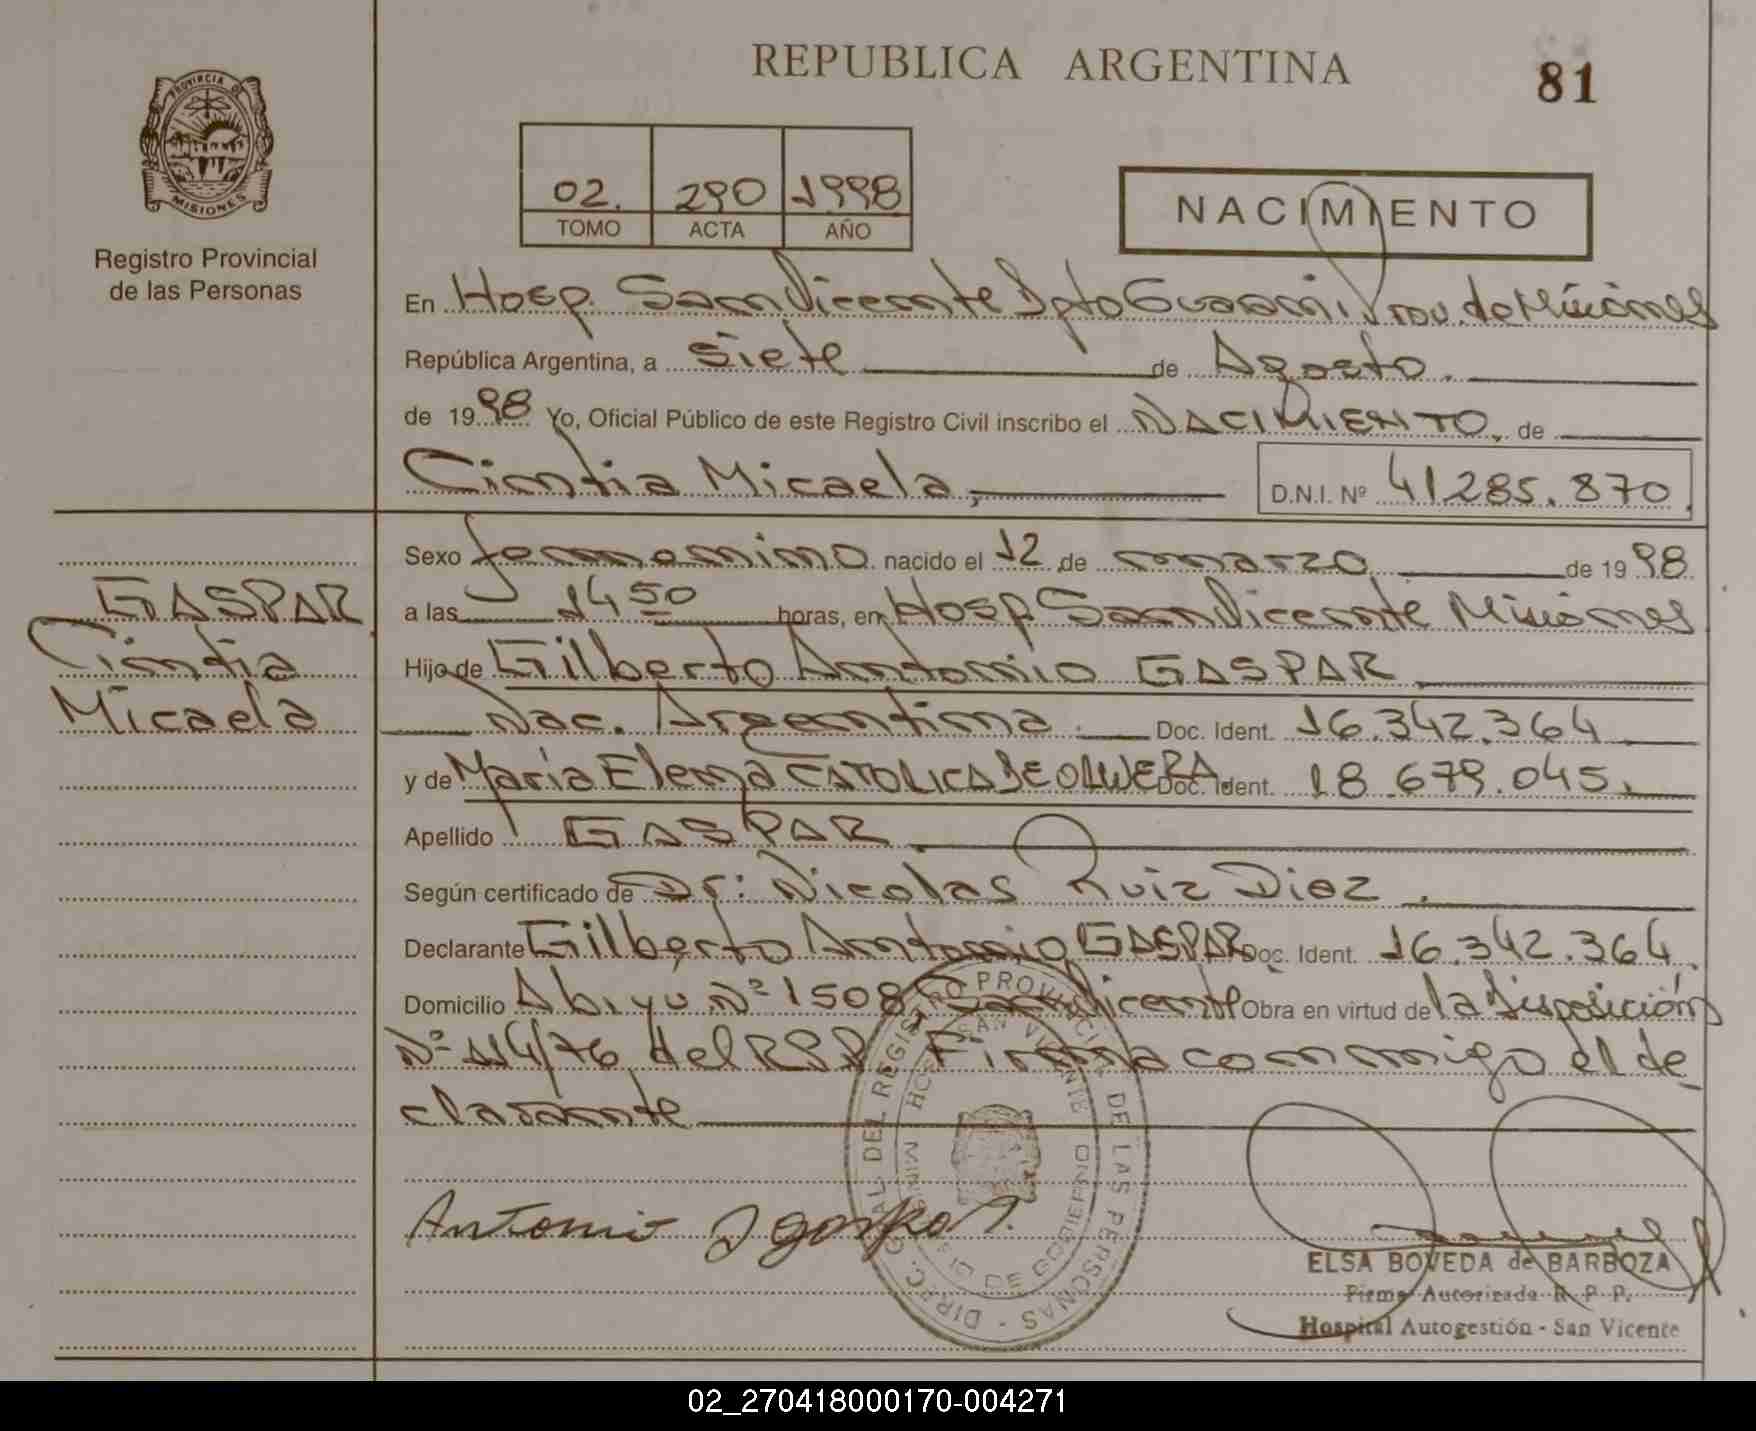 REPUBLICA ARGENTINA
81
PROVINCIA DE
MISIONES
Registro Provincial
de las Personas
02. 290 1998
TOMO ACTA AÑO
NACIMIENTO
En Hosp. San Vicente Dpto Guarani Prov. de Misiones
República Argentina, a siete de Agosto.
de 1998 Yo, Oficial Público de este Registro Civil inscribo el NACIMIENTO, de
Cintia Micaela, D.N.I. Nº 41285.870
Sexo femenino nacido el 12 de marzo de 1998
GASPAR
a las 14 50 horas, en Hosp San Vicente Misiones
Cintia
Hijo de Gilberto Antonio GASPAR
Micaela
Nac. Argentina. Doc. Ident. 16.342.364
y de Maria Elena CATOLICA DE OLIVERA Doc. Ident. 18.679.045.
Apellido GASPAR
Según certificado de Dr: Nicolas Ruiz Diez.
Declarante Gilberto Antonio GASPAR Doc. Ident. 16.342.364.
Domicilio Abiyu Nº 1508 San Vicente Obra en virtud de la disposición
Nº 114/76 del RPP Firma conmigo el de
clarante
DIREC. GRAL. DEL REGISTRO PROVINCIAL DE LAS PERSONAS -
SAN VICENTE
MINISTERIO DE GOBIERNO
Antonio
ELSA BOVEDA de BARBOZA
Firma Autorizada R. P. P.
Hospital Autogestión - San Vicente
02_270418000170-004271